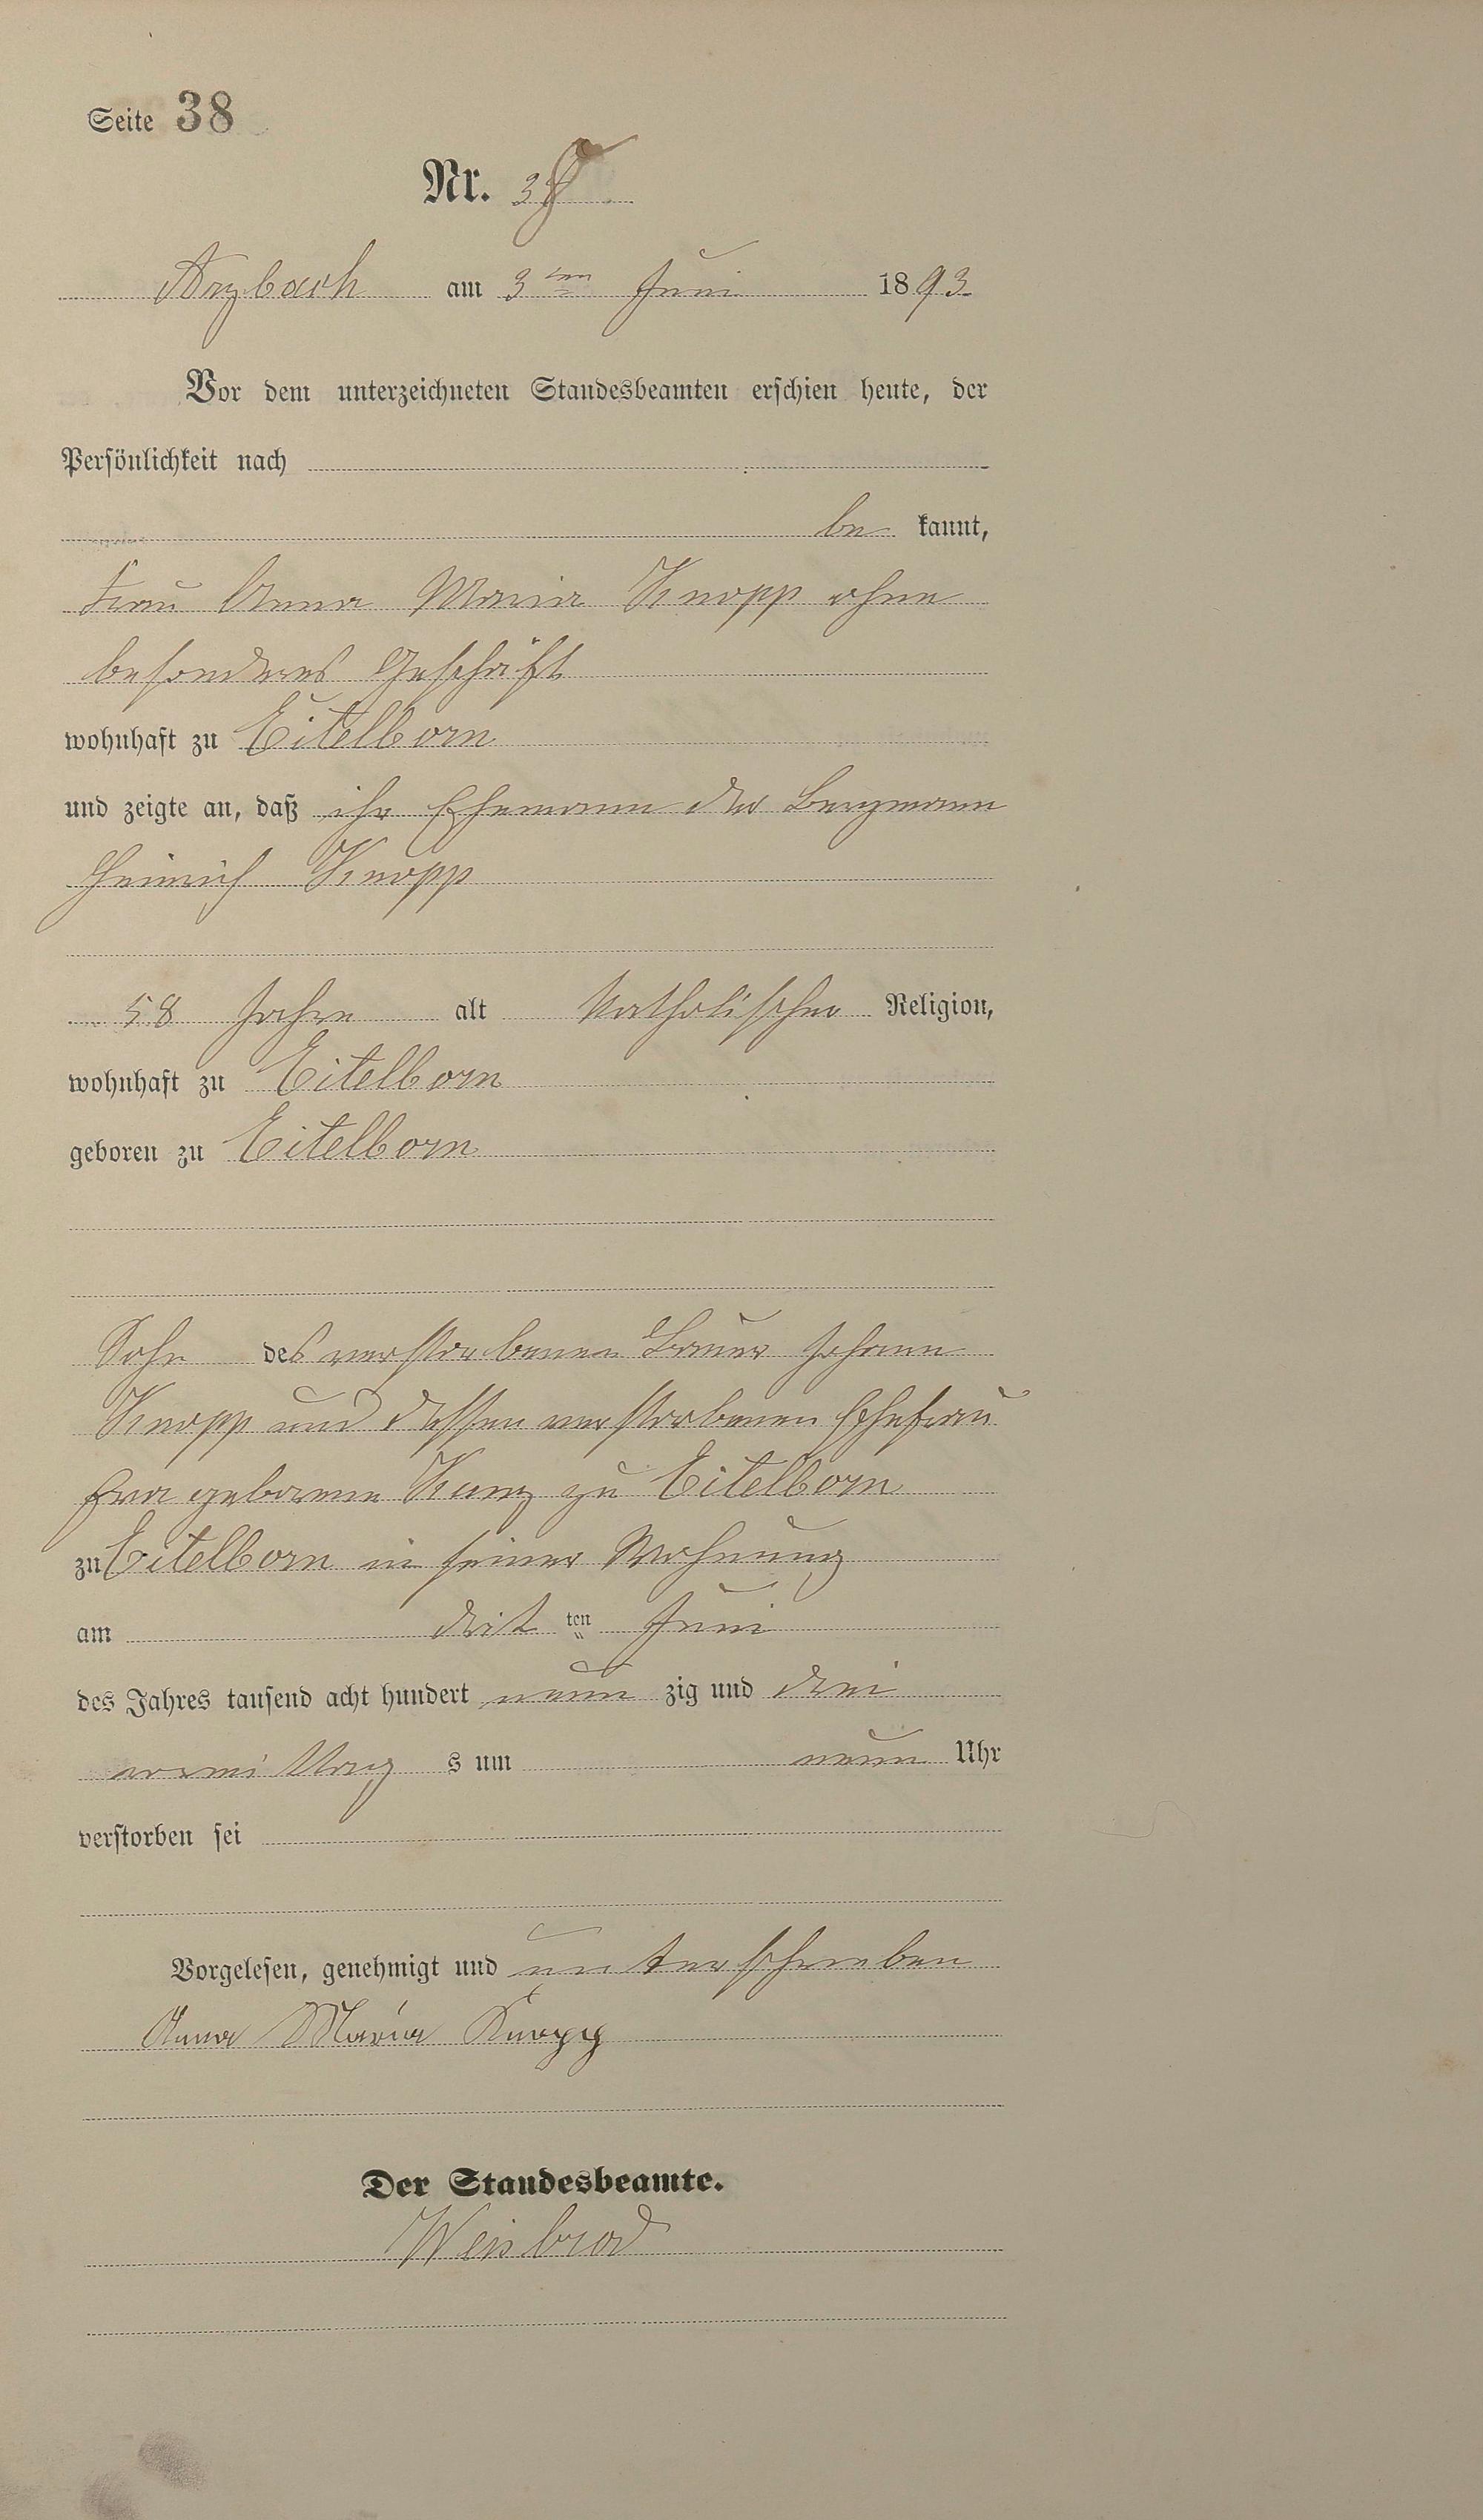 Seite 38
Nr. 38
Arzbach am 3ten Juni 1893
Vor dem unterzeichneten Standesbeamten erschien heute, der
Persönlichkeit nach
be kannt,
Frau Anna Maria Knopp ohne
besonderes Geschäft
wohnhaft zu Eitelborn
und zeigte an, daß ihr Ehemann der Bergmann
Heinrich Knopp
58 Jahre alt katholischer Religion,
wohnhaft zu Eitelborn
geboren zu Eitelborn
Sohn des verstorbenen Bauer Johann
Knopp und dessen verstorbenen Ehefrau
Eva geborene Kunz zu Eitelborn
zu Eitelborn in seiner Wohnung
am drit ten Juni
des Jahres tausend acht hundert neun zig und drei
vormittag s um neun Uhr
verstorben sei
Vorgelesen, genehmigt und unterschrieben
Anna Maria Knopp
Der Standesbeamte.
Weisbrod